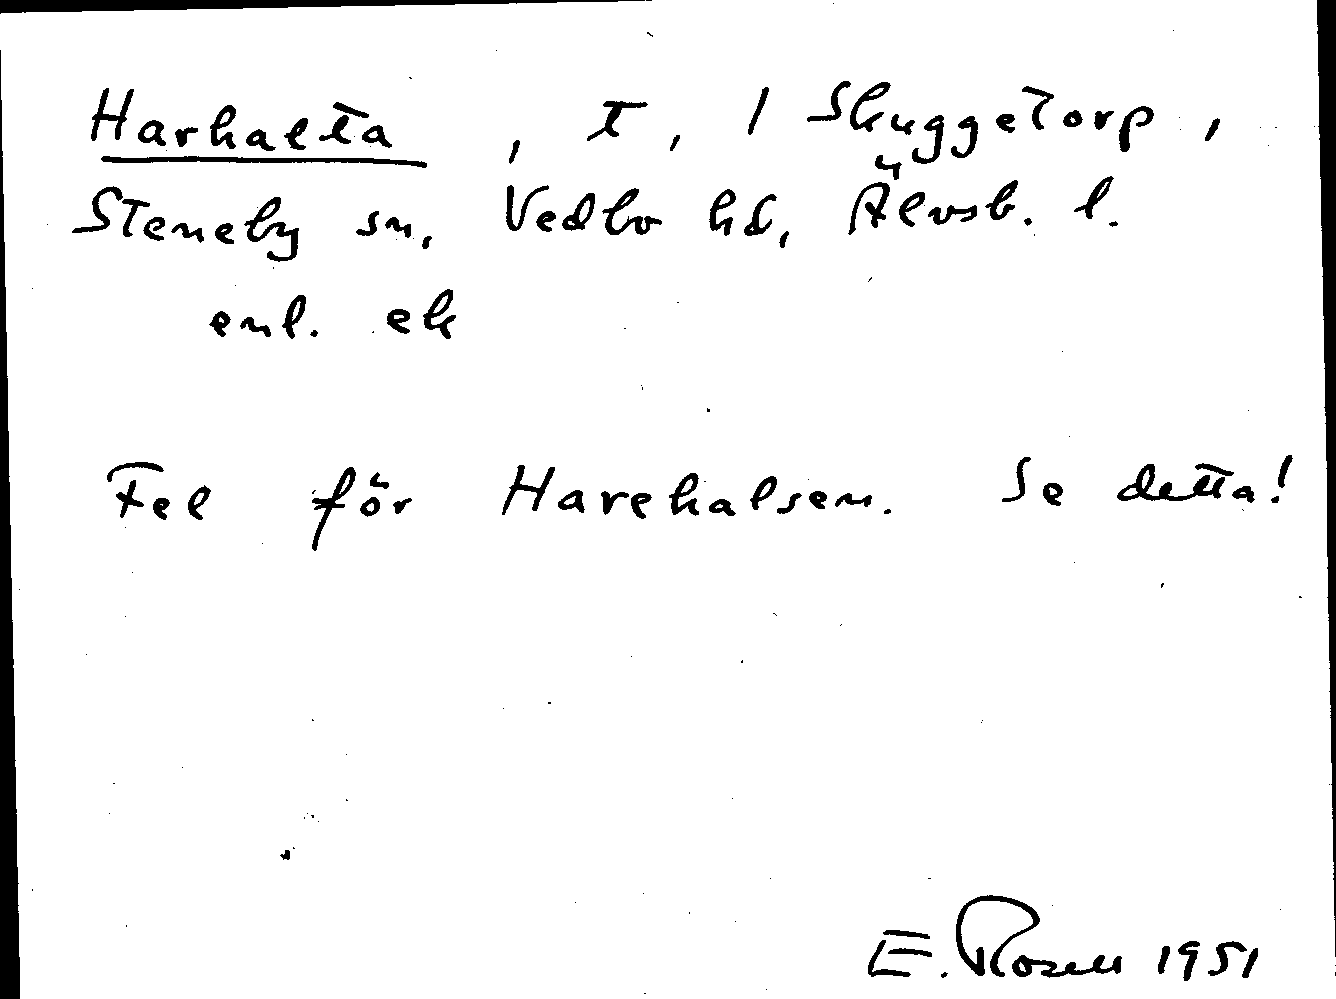 Harhalta, t, 1 Skuggetorp,
Steneby sn, Vedbo hd, Älvsb. l.
enl. ek
Fel för Harehalsen. Se detta!
E. Rosell 1951